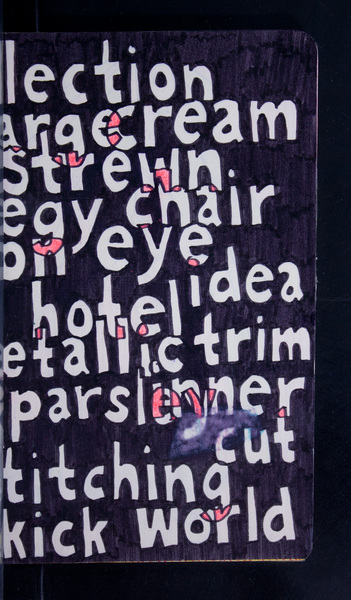 lection
arge cream
strewn
egy chair
on eye
hotel idea
etallic trim
parsl inner
cut
titching
kick world